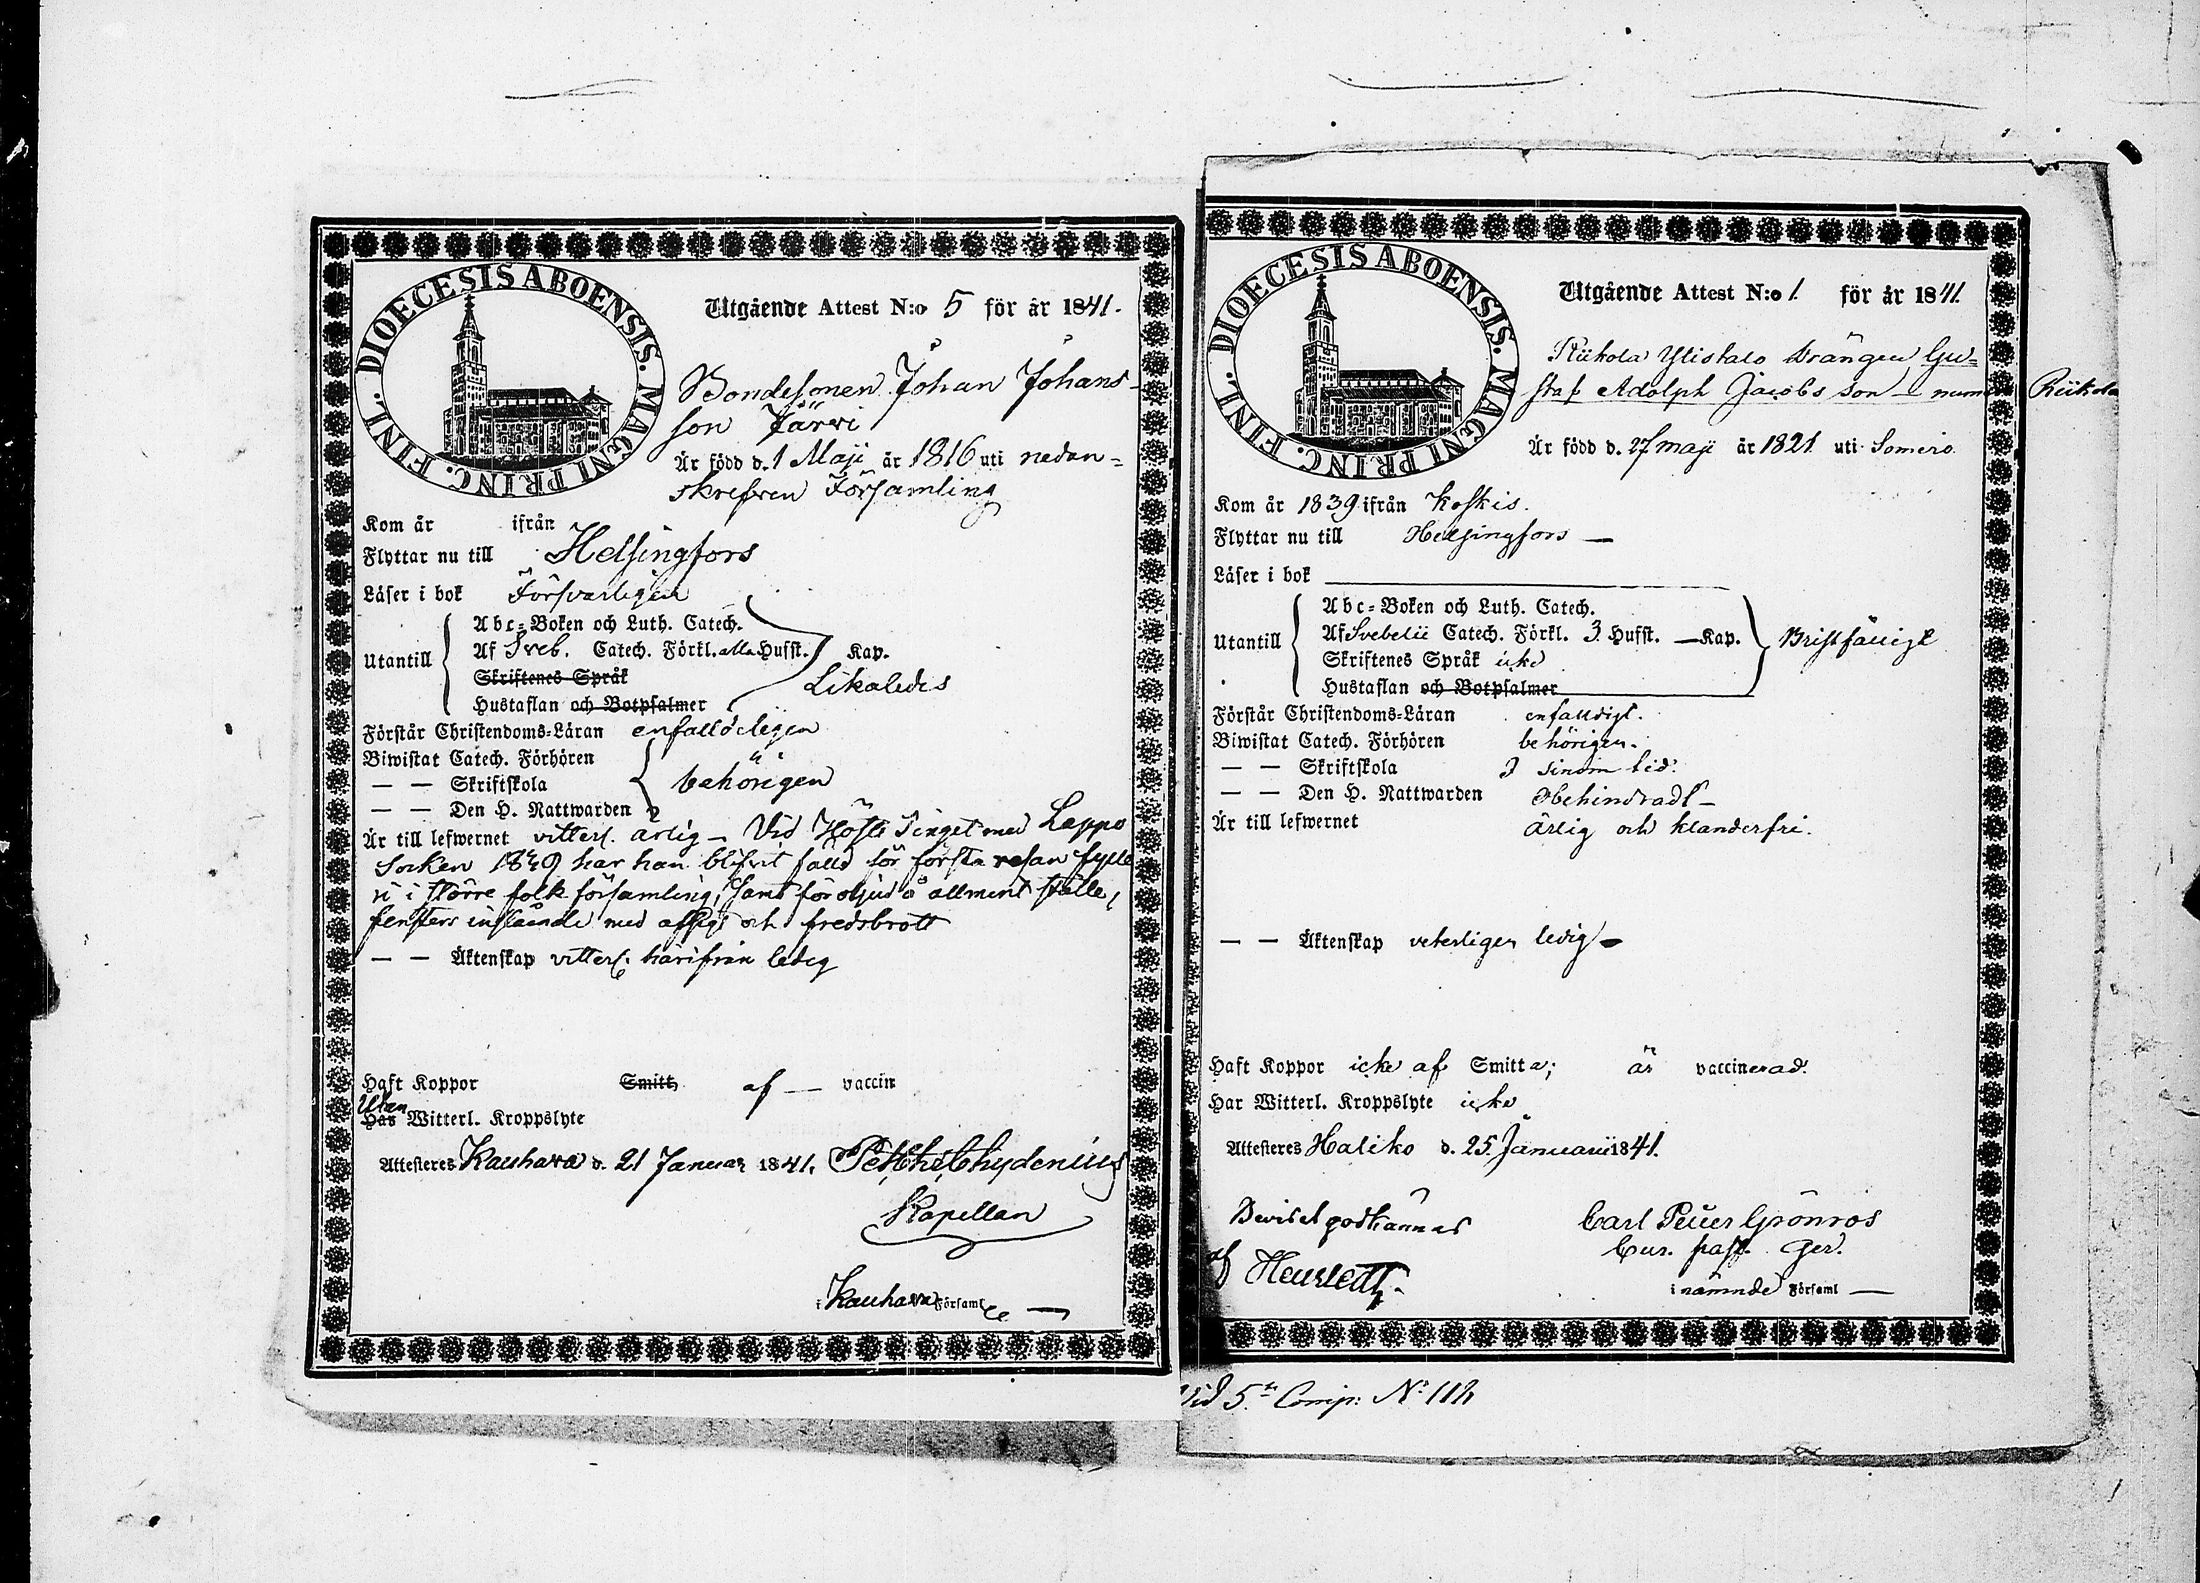 DIOECESIS ABOENSIS. MAGNI PRINC. FINL.
Utgående Attest N:o 5 för år 1841.
Bondesonen Johan Johans-
son Järvi
Är född d. 1 Maji år 1816 uti nedan-
skrefven Församling
Kom år ifrån
Flyttar nu till Helsingfors
Läser i bok Försvarligen
Utantill
Abc-Boken och Luth. Catech.
Af Sveb. Catech. Förkl. alla Hufst. Kap.
Skriftenes Språk
Likaledes
Hustaflan och Botpsalmer
Förstår Christendoms-Läran enfalldeligen
Biwistat Catech. Förhören
— — Skriftskola behörigen
— — Den H. Nattwarden
Är till lefwernet vitterl. ärlig — Vid Höste Tinget med Lappo
Socken 1840 har han blifvit fälld för första resan fylle
ri i större folk församling, samt för oljud å allment ställe,
fensters inslående med och fredsbrott
— — Äktenskap vitterl. härifrån ledig
Haft Koppor Smitt, af — vaccin
Utan
Har Witterl. Kroppslyte
Attesteres Kauhava d. 21 Januar 1841. Chydenius
Kapellan
i Kauhava Församl
DIOECESIS ABOENSIS. MAGNI PRINC. FINL.
Utgående Attest N:o 1. för år 1841.
Riikola Ylistalo Drängen Gu-
staf Adolph Jacobsson — Riikola
Är född d. 27 maji år 1821 uti Somero.
Kom år 1839 ifrån Koskis.
Flyttar nu till Helsingfors —
Läser i bok
Utantill
Abc-Boken och Luth. Catech.
Af Svebelii Catech. Förkl. 3 Hufst. — Kap. Bristfälligt
Skriftenes Språk icke
Hustaflan och Botpsalmer
Förstår Christendoms-Läran enfaldigt.
Biwistat Catech. Förhören behörigen.
— — Skriftskola I sinom tid.
— — Den H. Nattwarden Obehindradt —
Är till lefwernet ärlig och klanderfri.
— — Äktenskap veterligen ledig —
Haft Koppor icke af Smitta; är vaccinerad.
Har Witterl. Kroppslyte icke
Attesteres Haliko d. 25 Januarii 1841.
Beviset godkännes
af
Carl Petter Grönros
Cur. past. Ger.
i nämnde Församl —
Vid 5:te Comp: No 112